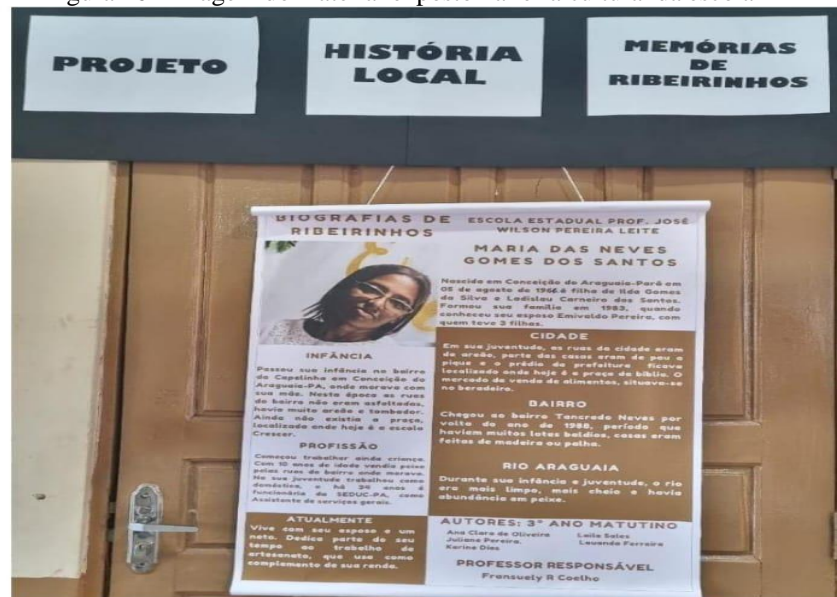 PROJETO
HISTÓRIA
LOCAL
MEMÓRIAS
DE
RIBEIRINHOS
BIOGRAFIAS DE
RIBEIRINHOS
ESCOLA ESTADUAL PROF. JOSÉ
WILSON PEREIRA LEITE
MARIA DAS NEVES
GOMES DOS SANTOS
Nascida em Conceição do Araguaia-Pará em
05 de agosto de é filha de Ilda Gomes
da Silva e Ladislau Carneiro dos Santos.
Formou sua família em 1983, quando
conheceu seu esposo Emivaldo Pereira, com
quem teve 3 filhas.
INFÂNCIA
Passou sua infância no bairro
da Capelinha em Conceição do
Araguaia-PA, onde morava com
sua mãe. Nesta época as ruas
do bairro não eram asfaltadas,
havia muito areão e tombador.
Ainda não existia a praça,
localizada onde hoje é a escola
Crescer.
PROFISSÃO
Começou trabalhar ainda criança.
Com 10 anos de idade vendia peixe
pelas ruas do bairro onde morava.
Na sua juventude trabalhou como
doméstica, e há 24 anos é
funcionária da SEDUC-PA, como
Assistente de serviços gerais.
ATUALMENTE
Vive com seu esposo e um
neto. Dedica parte do seu
tempo ao trabalho de
artesanato, que usa como
complemento de sua renda.
CIDADE
Em sua juventude, as ruas da cidade eram
de areão, parte das casas eram de pau a
pique e o prédio da prefeitura ficava
localizado onde hoje é a praça da bíblia. O
mercado de venda de alimentos, situava-se
no beradeiro.
BAIRRO
Chegou ao bairro Tancredo Neves por
volta do ano de 1988, período que
haviam muitos lotes baldios, casas eram
feitas de madeira ou palha.
RIO ARAGUAIA
Durante sua infância e juventude, o rio
era mais limpo, mais cheio e havia
abundância em peixe.
AUTORES: 3° ANO MATUTINO
Ana Clara de Oliveira
Juliana Pereira.
Karine Dias
Laila Sales
Lavenda Ferreira
PROFESSOR RESPONSÁVEL
Fransuely R Coelho